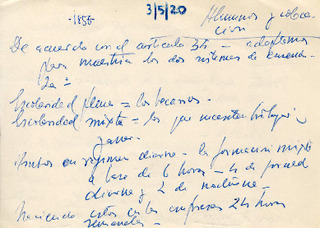 -1858-
3/5/20
Alumnos y coloca-
ción
De acuerdo con el artículo 34 - adoptamos
para nuestra los dos sistemas de
Escolaridad plena = los becarios.
Escolaridad mixta = los que necesitan trabajar
ganar.
en régimen diurno - la formación mixta
a base de 6 horas - 4 de jornada
diurna y 2 de nocturno -
haciendo estos en las empresas 24 horas
semanales -